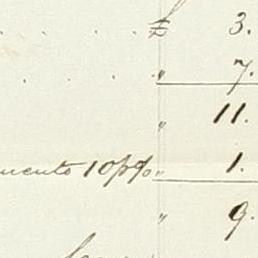 . . . . £ 3.
. . . . " 7.
" 11.
mento 10 p% " 1.
" 9.